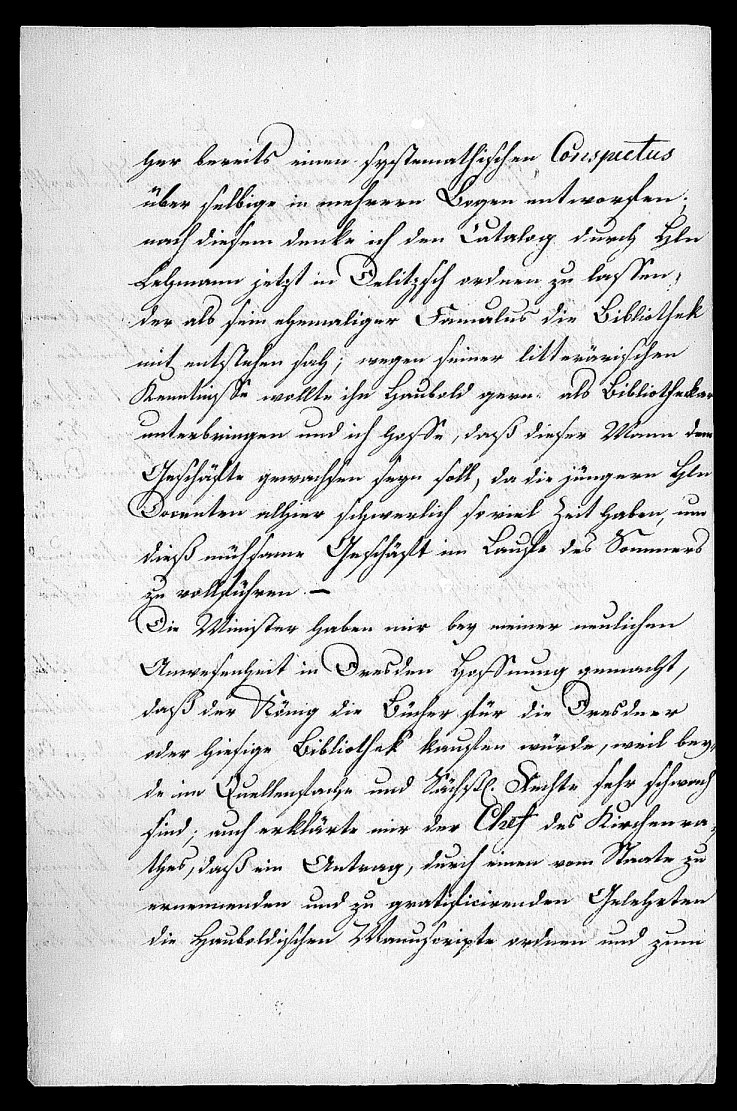 her bereits einen systemathischen Conspectus
über selbige in mehrern Bogen entworfen;
nach diesem denke ich den Catalog durch Hln
Lehmann jetzt in Delitzsch ordnen zu lassen,
der als sein ehemaliger Famulus die Bibliothek
mit entstehen sah; wegen seiner litterärischen
Kenntnisse wollte ihn Haubold gern als Bibliothekar
unterbringen und ich hoffe, daß dieser Mann dem
Geschäfte gewachsen seyn soll, da die jüngern Hln
Docenten alhier schwerlich so viel Zeit haben, um
dieß mühsame Geschäft im Laufe des Sommers
zu vollführen. —
Die Minister haben mir bey meiner neulichen
Anwesenheit in Dresden Hoffnung gemacht,
daß der König die Bücher für die Dresdner
oder hiesige Bibliothek kaufen würde, weil bey-
de im Quellenfache und Sächß. Rechte sehr schwach
sind; auch erklärte mir der Chef des Kirchenra-
thes, daß ein Antrag, durch einen vom Staate zu
ernennenden und zu gratificirenden Gelehrten
die Hauboldischen Manuscripte ordnen und zum